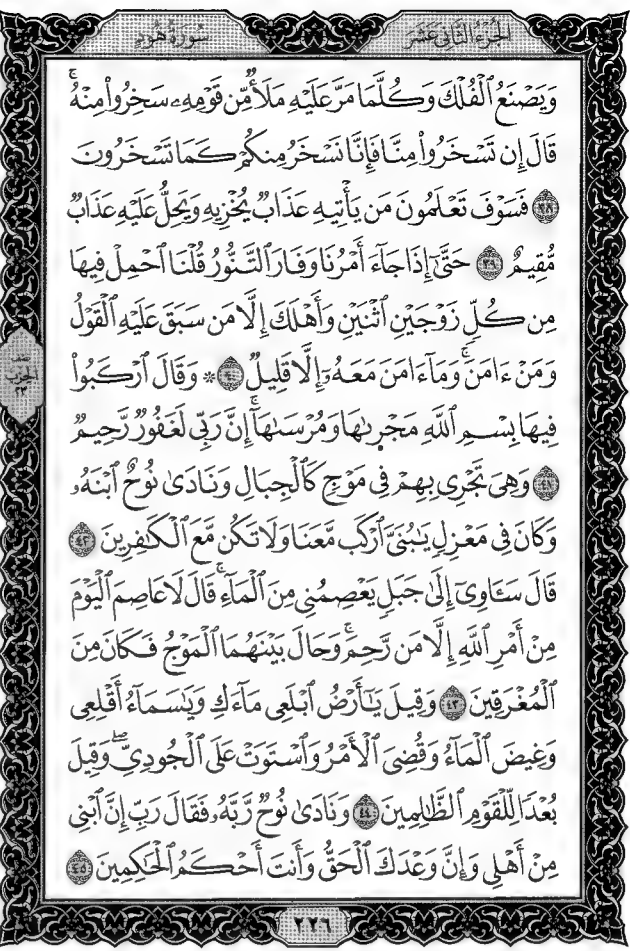 الجُزْءُ الثَّانِي عَشَر
سُورَةُ هُودٍ
وَيَصْنَعُ ٱلْفُلْكَ وَكُلَّمَا مَرَّ عَلَيْهِ مَلَأٌ مِّن قَوْمِهِۦ سَخِرُوا۟ مِنْهُ ۚ
قَالَ إِن تَسْخَرُوا۟ مِنَّا فَإِنَّا نَسْخَرُ مِنكُمْ كَمَا تَسْخَرُونَ
٣٨ فَسَوْفَ تَعْلَمُونَ مَن يَأْتِيهِ عَذَابٌ يُخْزِيهِ وَيَحِلُّ عَلَيْهِ عَذَابٌ
مُّقِيمٌ ٣٩ حَتَّىٰٓ إِذَا جَآءَ أَمْرُنَا وَفَارَ ٱلتَّنُّورُ قُلْنَا ٱحْمِلْ فِيهَا
مِن كُلٍّ زَوْجَيْنِ ٱثْنَيْنِ وَأَهْلَكَ إِلَّا مَن سَبَقَ عَلَيْهِ ٱلْقَوْلُ
وَمَنْ ءَامَنَ ۚ وَمَآ ءَامَنَ مَعَهُۥٓ إِلَّا قَلِيلٌ ٤٠ * وَقَالَ ٱرْكَبُوا۟
فِيهَا بِسْمِ ٱللَّهِ مَجْر۪ىٰهَا وَمُرْسَىٰهَآ ۚ إِنَّ رَبِّى لَغَفُورٌ رَّحِيمٌ
٤١ وَهِىَ تَجْرِى بِهِمْ فِى مَوْجٍ كَٱلْجِبَالِ وَنَادَىٰ نُوحٌ ٱبْنَهُۥ
وَكَانَ فِى مَعْزِلٍ يَـٰبُنَىَّ ٱرْكَب مَّعَنَا وَلَا تَكُن مَّعَ ٱلْكَـٰفِرِينَ ٤٢
قَالَ سَـَٔاوِىٓ إِلَىٰ جَبَلٍ يَعْصِمُنِى مِنَ ٱلْمَآءِ ۚ قَالَ لَا عَاصِمَ ٱلْيَوْمَ
مِنْ أَمْرِ ٱللَّهِ إِلَّا مَن رَّحِمَ ۚ وَحَالَ بَيْنَهُمَا ٱلْمَوْجُ فَكَانَ مِنَ
ٱلْمُغْرَقِينَ ٤٣ وَقِيلَ يَـٰٓأَرْضُ ٱبْلَعِى مَآءَكِ وَيَـٰسَمَآءُ أَقْلِعِى
وَغِيضَ ٱلْمَآءُ وَقُضِىَ ٱلْأَمْرُ وَٱسْتَوَتْ عَلَى ٱلْجُودِىِّ ۖ وَقِيلَ
بُعْدًا لِّلْقَوْمِ ٱلظَّـٰلِمِينَ ٤٤ وَنَادَىٰ نُوحٌ رَّبَّهُۥ فَقَالَ رَبِّ إِنَّ ٱبْنِى
مِنْ أَهْلِى وَإِنَّ وَعْدَكَ ٱلْحَقُّ وَأَنتَ أَحْكَمُ ٱلْحَـٰكِمِينَ ٤٥
نصف
الحزب
٢٣
٢٢٦